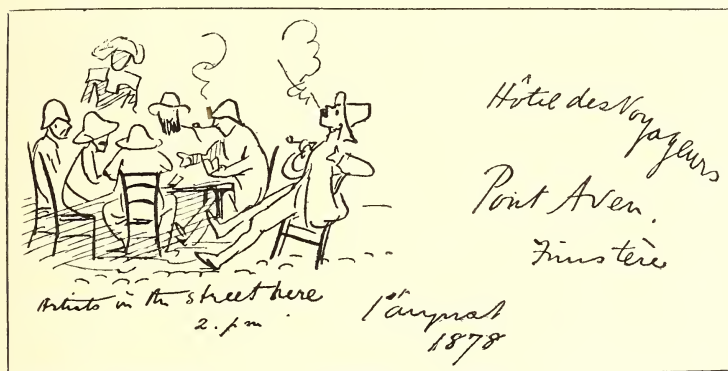 Hôtel des Voyageurs
Pont Aven.
Finistère
Artists in the street here
2. pm
1st August
1878